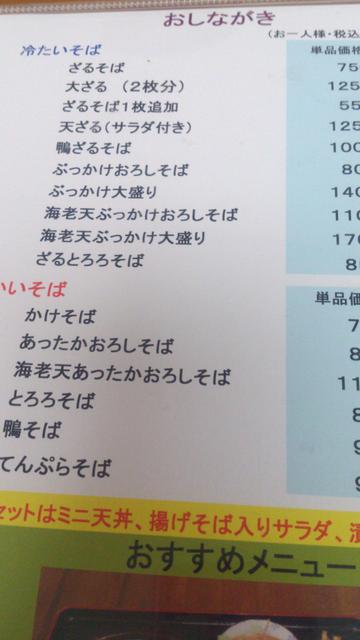 おしながき
(お一人様・税込
冷たいそば 単品価格
ざるそば 75
大ざる (2枚分) 125
ざるそば1枚追加 55
天ざる(サラダ付き) 125
鴨ざるそば 100
ぶっかけおろしそば 80
ぶっかけ大盛り 140
海老天ぶっかけおろしそば 110
海老天ぶっかけ大盛り 170
ざるとろろそば 8
いそば 単品価
かけそば 7
あったかおろしそば 8
海老天あったかおろしそば 11
とろろそば 8
鴨そば 9
てんぷらそば 9
セットはミニ天丼、揚げそば入りサラダ、漬
おすすめメニュー